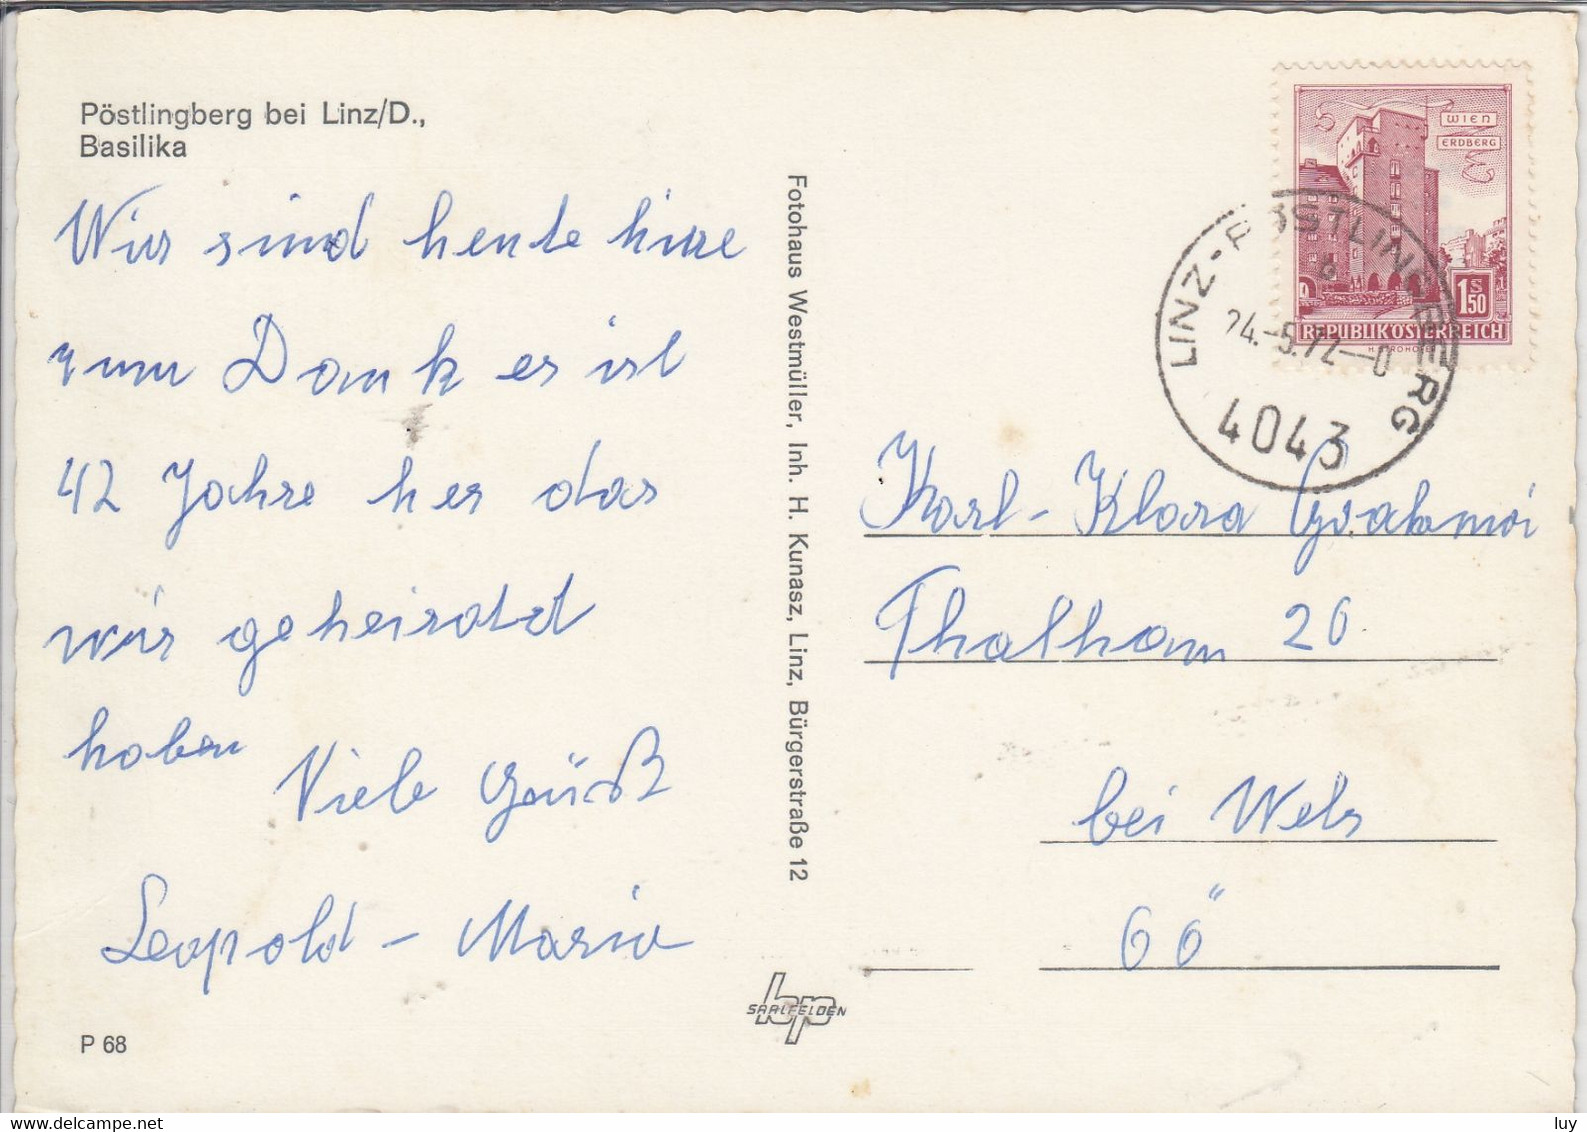 Pöstlingberg bei Linz/D.,
Basilika
Wir sind heute hier
zum Dank es ist
42 Jahre her das
wir geheiratet
haben
Viele Grüße
Leopold - Maria
P 68
Fotohaus Westmüller, Inh. H. Kunasz, Linz, Bürgerstraße 12
SAALFELDEN
WIEN
ERDBERG
1 S 50
REPUBLIK ÖSTERREICH
LINZ-PÖSTLINGBERG
b
24.-5.72--0
4043
Karl - Klara
Thalham 20
bei Wels
OÖ
luy